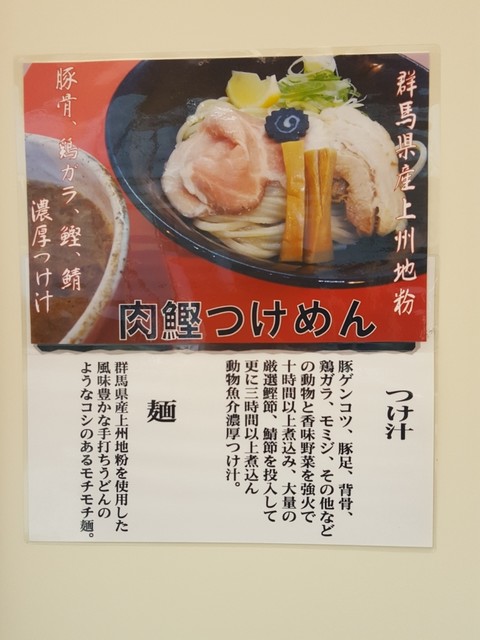 群馬県産上州地粉
豚骨、鶏ガラ、鰹、鯖
濃厚つけ汁
肉鰹つけめん
つけ汁
豚ゲンコツ、豚足、背骨、
鶏ガラ、モミジ、その他など
の動物と香味野菜を強火で
十時間以上煮込み、大量の
厳選鰹節、鯖節を投入して
更に三時間以上煮込ん
動物魚介濃厚つけ汁。
麺
群馬県産上州地粉を使用した
風味豊かな手打ちうどんの
ようなコシのあるモチモチ麺。